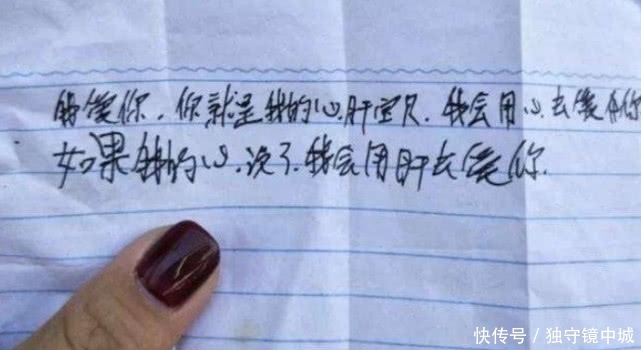 我爱你.你就是我的心肝宝贝.我会用心去爱你
如果我的心.没了.我会用肝去爱你.
快传号 / 独守镜中城